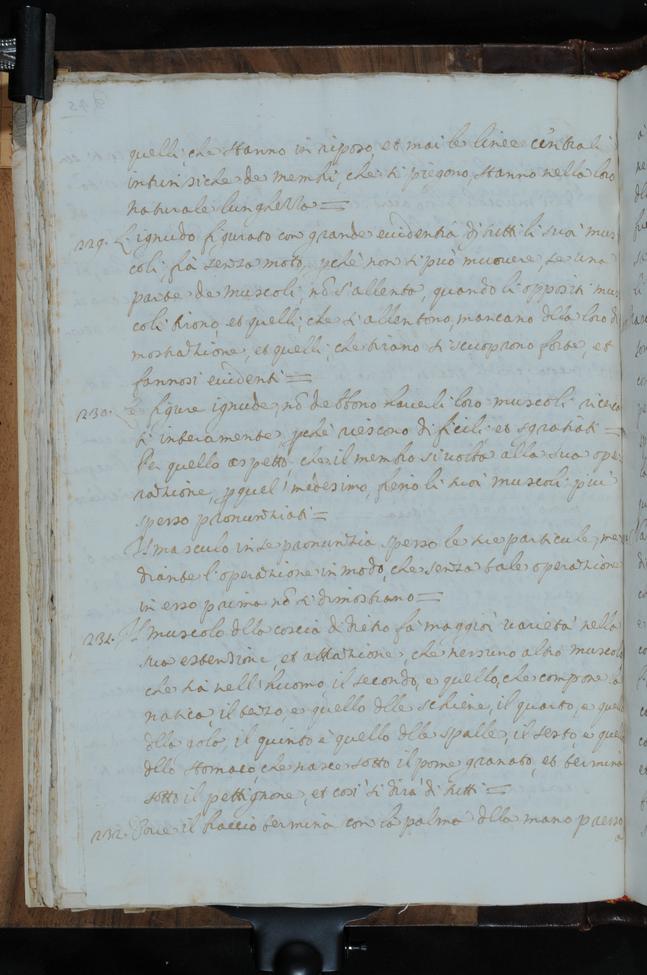 quelli, che stanno in riposo et mai le linee centrali
intrinsiche de membri, che si piegono, stanno nella loro
naturale lunghezza =
229. L'ignudo figurato con grande euidentia di tutti li suoi mus
coli, fia senza moto, pchè non si può muouere, se una
parte de muscoli, nō s'allenta, quando li oppositi mus
coli tirono, et quelli, che si allentono, mancano dlla loro di
mostratione, et quelli, che tirano si scuoprono forte, et
fannosi euidenti =
230. Le figure ignude, nō debbono hauer li loro muscoli ricerca
ti interamente, pchè riescono dificili et sgratiati =
Per quello aspetto, che il membro si uolta alla sua ope
ratione, p quel' medesimo, fieno li suoi muscoli più
spesso pronuntiati =
Il musculo in se pronuntia spesso le sue particule, me
diante l'operatione in modo, che senza tale operatione
in esso prima nō si dimostrano =
231. Il muscolo dlla coscia di dietro fa maggior' uarietà nella
sua estensione, et attratione, che nessuno altro muscolo
che sia nell'huomo, il secondo, e quello, che compone la
natica il terzo, e quello dlle schiene, il quarto, e quel
dlla gola, il quinto è quello dlle spalle, il sesto, e quel
dllo stomaco, che nasce sotto il pome granato, et termina
sotto il pettignone, et così si dirà di tutti =
232. Doue il braccio termina con la palma dlla mano presso
a